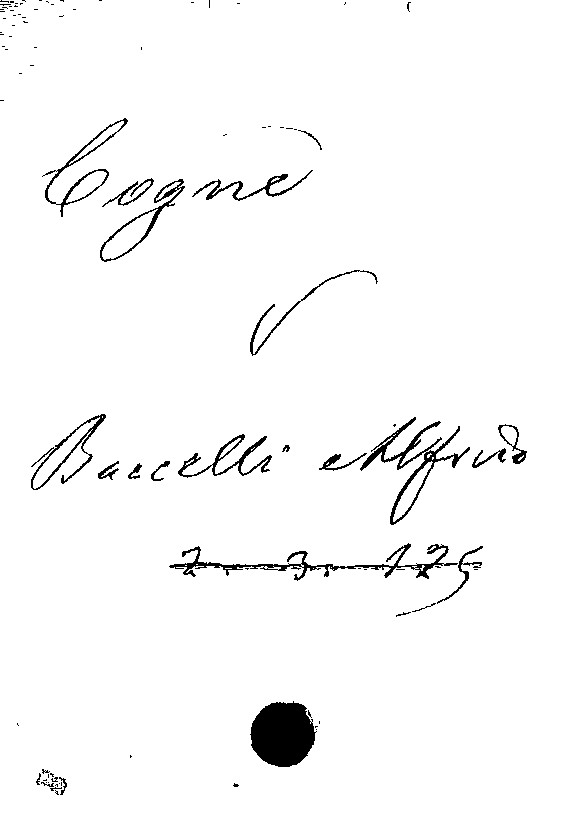 Cogne
V
Baccelli Alfredo
2. 3. 125